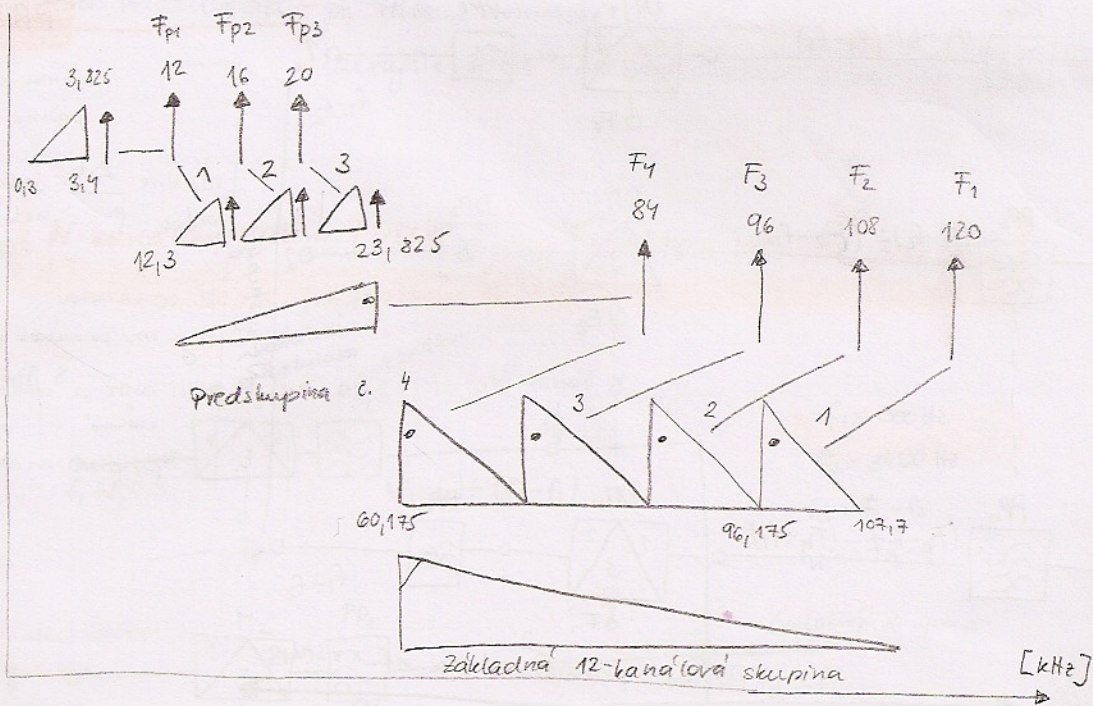 Fp1 Fp2 Fp3
3,825 12 16 20
0,3 3,4
1 2 3
12,3 23,825
F4 F3 F2 F1
84 96 108 120
Predskupina č. 4 3 2 1
60,175 96,175 107,7
Základná 12-kanálová skupina
[kHz]